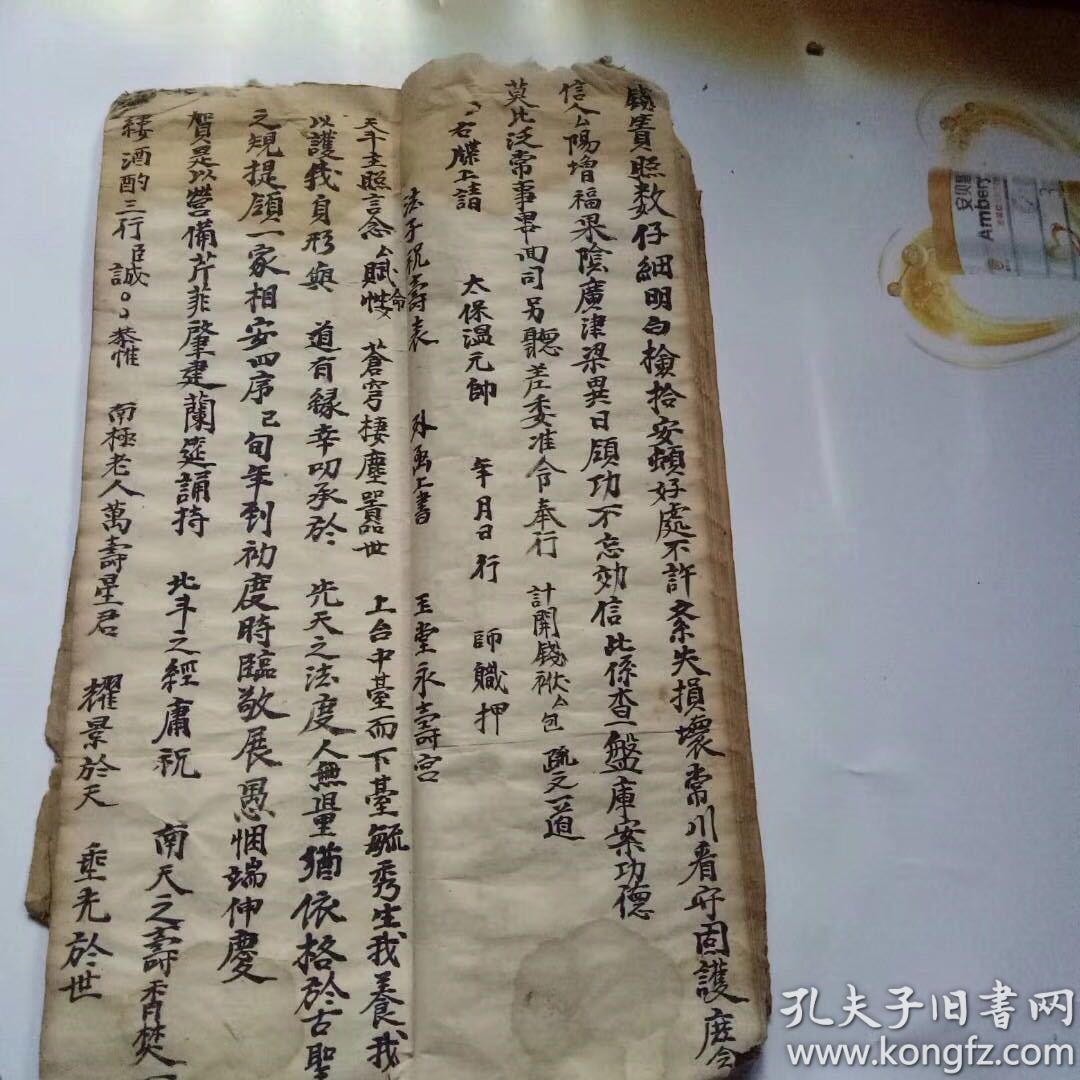 錢賫照数仔細明白檢拾安頓好處不許紊失損壞常川看守固護庶令
信人厶陽增福果陰廣津梁異日領功不忘効信比係查盤庫案功德
莫比泛常事畢回司另聽差委准令奉行 計開錢袱厶包 疏文一道
右牒上請 太保溫元帥 年月日行 師職押
法子祝壽表 外函上書 玉堂永壽宮
天斗主照言念厶賦性命 蒼穹棲塵器世 上台中臺而下臺毓秀生我養我
以護我身形與 道有緣幸叨承於 先天之法度人無量猶依格於古聖
之規提領一家相安四序己旬年到初度時臨敬展愚悃瑞伸慶
賀是以營備芹菲肇建蘭筵誦持 北斗之經庸祝 南天之壽香焚一
縷酒酌三行臣誠〻恭惟 南極老人萬壽星君 耀景於天 垂光於世
安贝馨
Ambery
孔夫子旧书网
www.kongfz.com